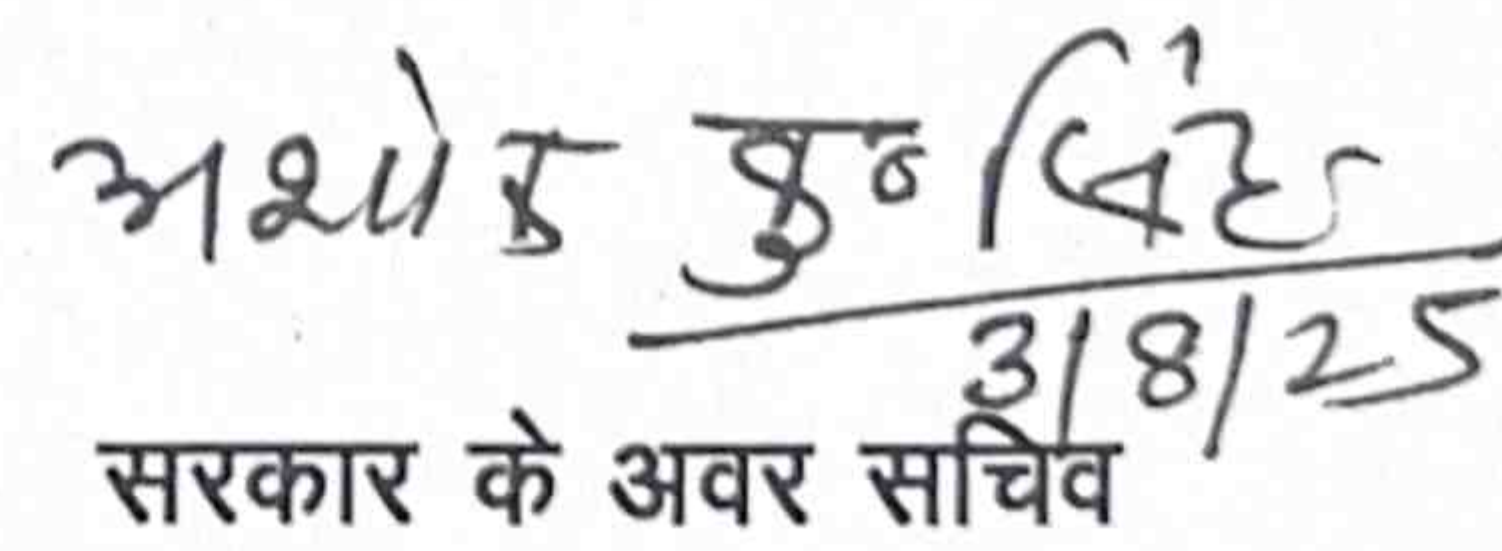 अशोक कु० सिंह
3/8/25
सरकार के अवर सचिव